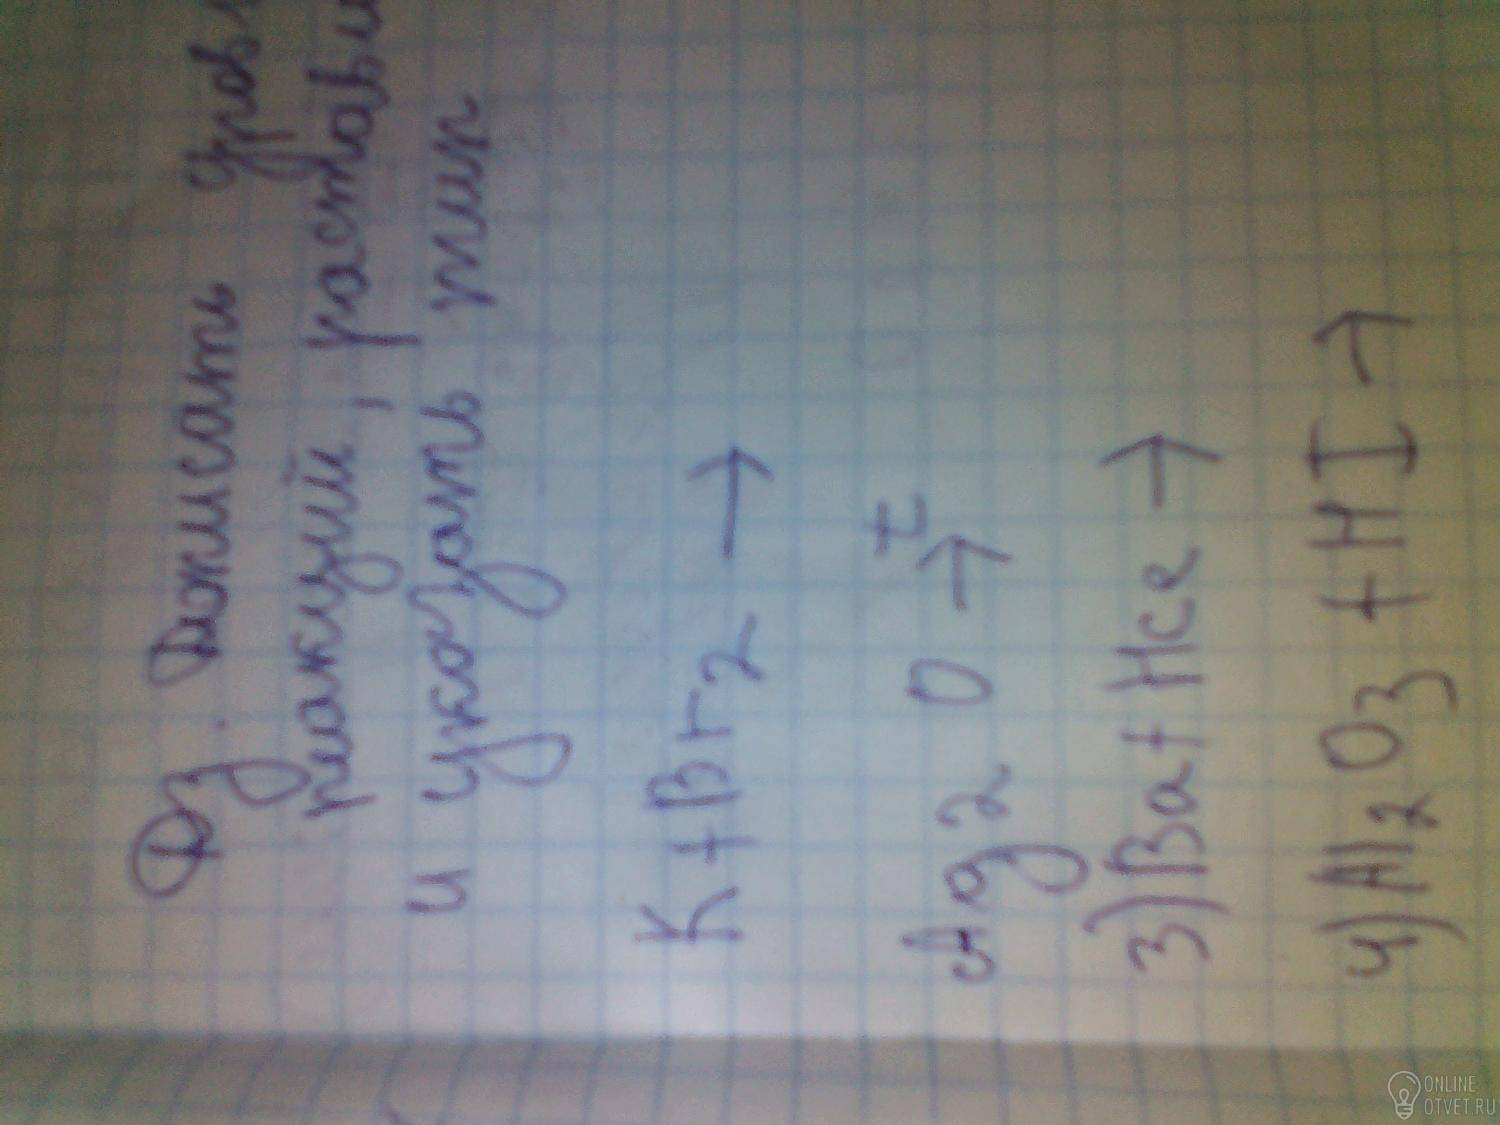 Дз. Дописать урав
реакций, расстави
и указать тип
K+Br2 →
Ag2 O t→
3) Ba+HCe →
4) Al2O3 + HI →
ONLINE
OTVET.RU